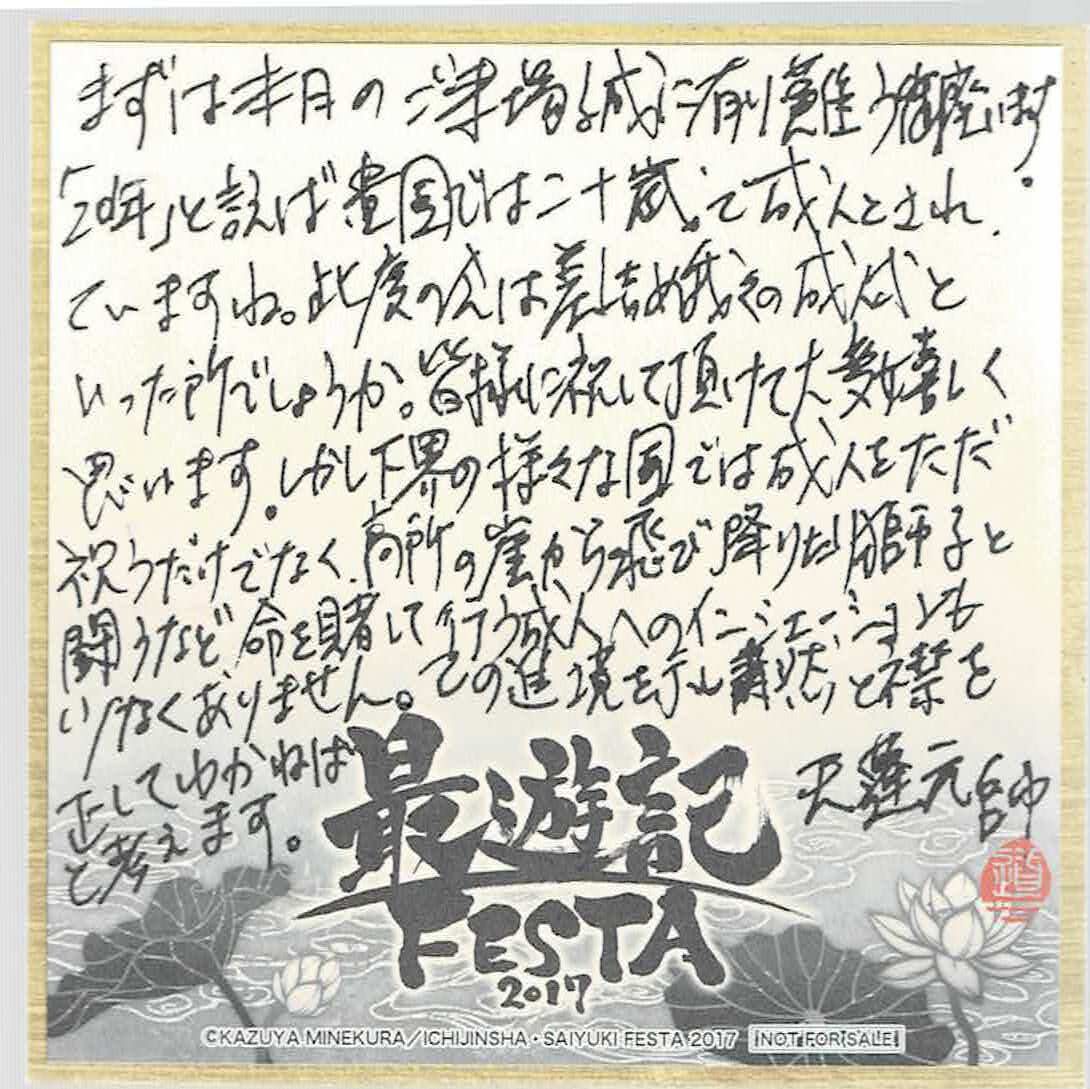 まずは本日のご来場誠に有り難う御座います。
「20年」と言えば貴国では二十歳で成人とされ
ていますね。此度の会は差し詰め我々の成人式と
いった所でしょうか。皆様に祝して頂けて大変嬉しく
思います。しかし下界の様々な国では成人をただ
祝うだけでなく、高所の崖から飛び降りたり獅子と
闘うなど命を賭して行う成人へのイニシエーションも
少なくありません。その進境を示し粛然と襟を
正してゆかねば
と考えます。
天蓬元帥
最遊記
FESTA
2017
©KAZUYA MINEKURA/ICHIJINSHA・SAIYUKI FESTA 2017 NOT FOR SALE